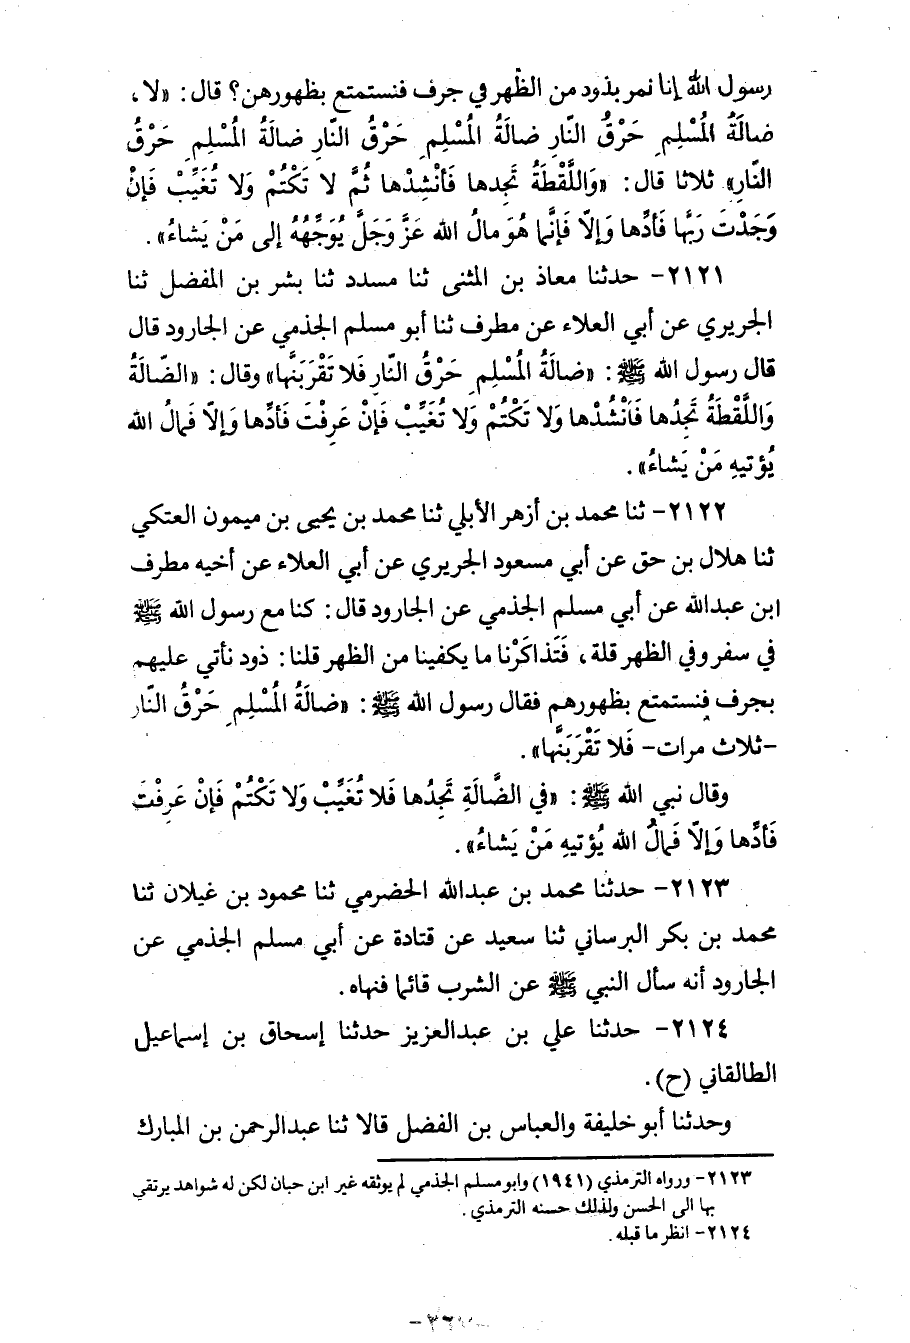 رسول الله إنا نمر بذود من الظهر في جرف فنستمتع بظهورهن؟ قال: «لا،
ضالَةُ المُسْلِمِ حَرْقُ النّارِ ضالَةُ المُسْلِمِ حَرْقُ النّارِ ضالَةُ المُسْلِمِ حَرْقُ
النّارِ» ثلاثا قال: «وَاللَّقْطَةُ تَجِدها فَأنْشِدْها ثُمَّ لا تَكْتُمْ وَلا تُغَيِّبْ فَإنْ
وَجَدْتَ رَبَّها فَأدِّها وَإلاّ فَإنَّما هُوَ مالُ الله عَزَّ وَجَلَّ يُوَجِّهُهُ إلى مَنْ يَشاءُ».
٢١٢١- حدثنا معاذ بن المثنى ثنا مسدد ثنا بشر بن المفضل ثنا
الجريري عن أبي العلاء عن مطرف ثنا أبو مسلم الجذمي عن الجارود قال
قال رسول الله ﷺ: «ضالَةُ المُسْلِمِ حَرْقُ النّارِ فَلا تَقْرَبَنَّها» وقال: «الضّالَةُ
وَاللَّقْطَةُ تَجِدُها فَانْشُدْها وَلا تَكْتُمْ وَلا تُغَيِّبْ فَإنْ عَرِفْتَ فَأدِّها وَإلاّ فَمالُ الله
يُؤتيهِ مَنْ يَشاءُ».
٢١٢٢- ثنا محمد بن أزهر الأبلي ثنا محمد بن يحيى بن ميمون العتكي
ثنا هلال بن حق عن أبي مسعود الجريري عن أبي العلاء عن أخيه مطرف
ابن عبدالله عن أبي مسلم الجذمي عن الجارود قال: كنا مع رسول الله ﷺ
في سفر وفي الظهر قلة، فَتَذاكَرْنا ما يكفينا من الظهر قلنا: ذود نأتي عليهم
بجرف فنستمتع بظهورهم فقال رسول الله ﷺ: «ضالَةُ المُسْلِمِ حَرْقُ النّارِ
-ثلاث مرات- فَلا تَقْرَبَنَّها».
وقال نبي الله ﷺ: «في الضَّالَةِ تَجِدُها فَلا تُغَيِّبْ وَلا تَكْتُمْ فَإنْ عَرِفْتَ
فَأدِّها وَإلاّ فَمالُ الله يُؤتيهِ مَنْ يَشاءُ».
٢١٢٣- حدثنا محمد بن عبدالله الحضرمي ثنا محمود بن غيلان ثنا
محمد بن بكر البرساني ثنا سعيد عن قتادة عن أبي مسلم الجذمي عن
الجارود أنه سأل النبي ﷺ عن الشرب قائما فنهاه.
٢١٢٤- حدثنا علي بن عبدالعزيز حدثنا إسحاق بن إسماعيل
الطالقاني (ح).
وحدثنا أبو خليفة والعباس بن الفضل قالا ثنا عبدالرحمن بن المبارك
٢١٢٣- ورواه الترمذي (١٩٤١) وابو مسلم الجذمي لم يوثقه غير ابن حبان لكن له شواهد يرتقي
بها الى الحسن ولذلك حسنه الترمذي.
٢١٢٤- انظر ما قبله.